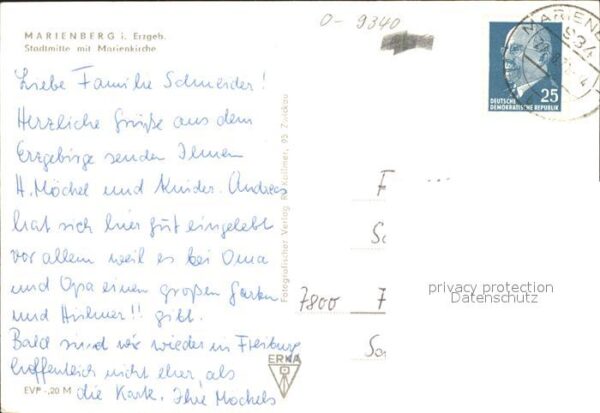 MARIENBERG i. Erzgeb.
Stadtmitte mit Marienkirche
Liebe Familie Schneider!
Herzliche Grüße aus dem
Erzgebirge senden Ihnen
H. Möchel und Kinder. Andreas
hat sich hier gut eingelebt
vor allem weil es bei Oma
und Opa einen großen Garten
und Hühner!! gibt.
Bald sind wir wieder in Freiburg
hoffentlich nicht eher, als
die Karte. Ihre Möchels
EVP -,20 M
Fotografischer Verlag R. Kallmer, 95 Zwickau
ERKA
O- 9340
MARIENB
934
25
DEUTSCHE
DEMOKRATISCHE REPUBLIK
F
Sc
7800 F
privacy protection
Datenschutz